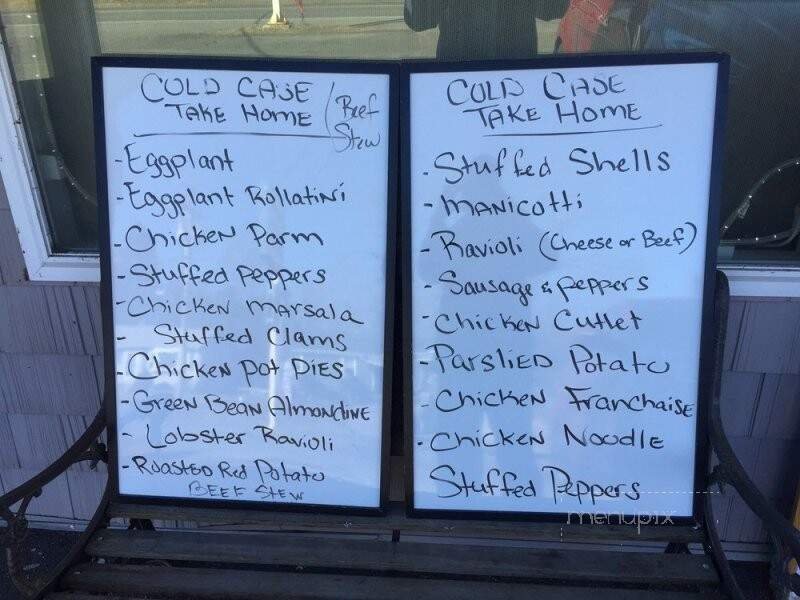 COLD CASE
TAKE HOME / Beef Stew
- Eggplant
- Eggplant Rollatini
- Chicken Parm
- Stuffed Peppers
- Chicken Marsala
- Stuffed Clams
- Chicken Pot Pies
- Green Bean Almondine
- Lobster Ravioli
- Roasted Red Potato
BEEF STEW
COLD CASE
TAKE HOME
- Stuffed Shells
- Manicotti
- Ravioli (Cheese or Beef)
- Sausage & Peppers
- Chicken Cutlet
- Parslied Potato
- Chicken Franchaise
- Chicken Noodle
Stuffed Peppers
menupix